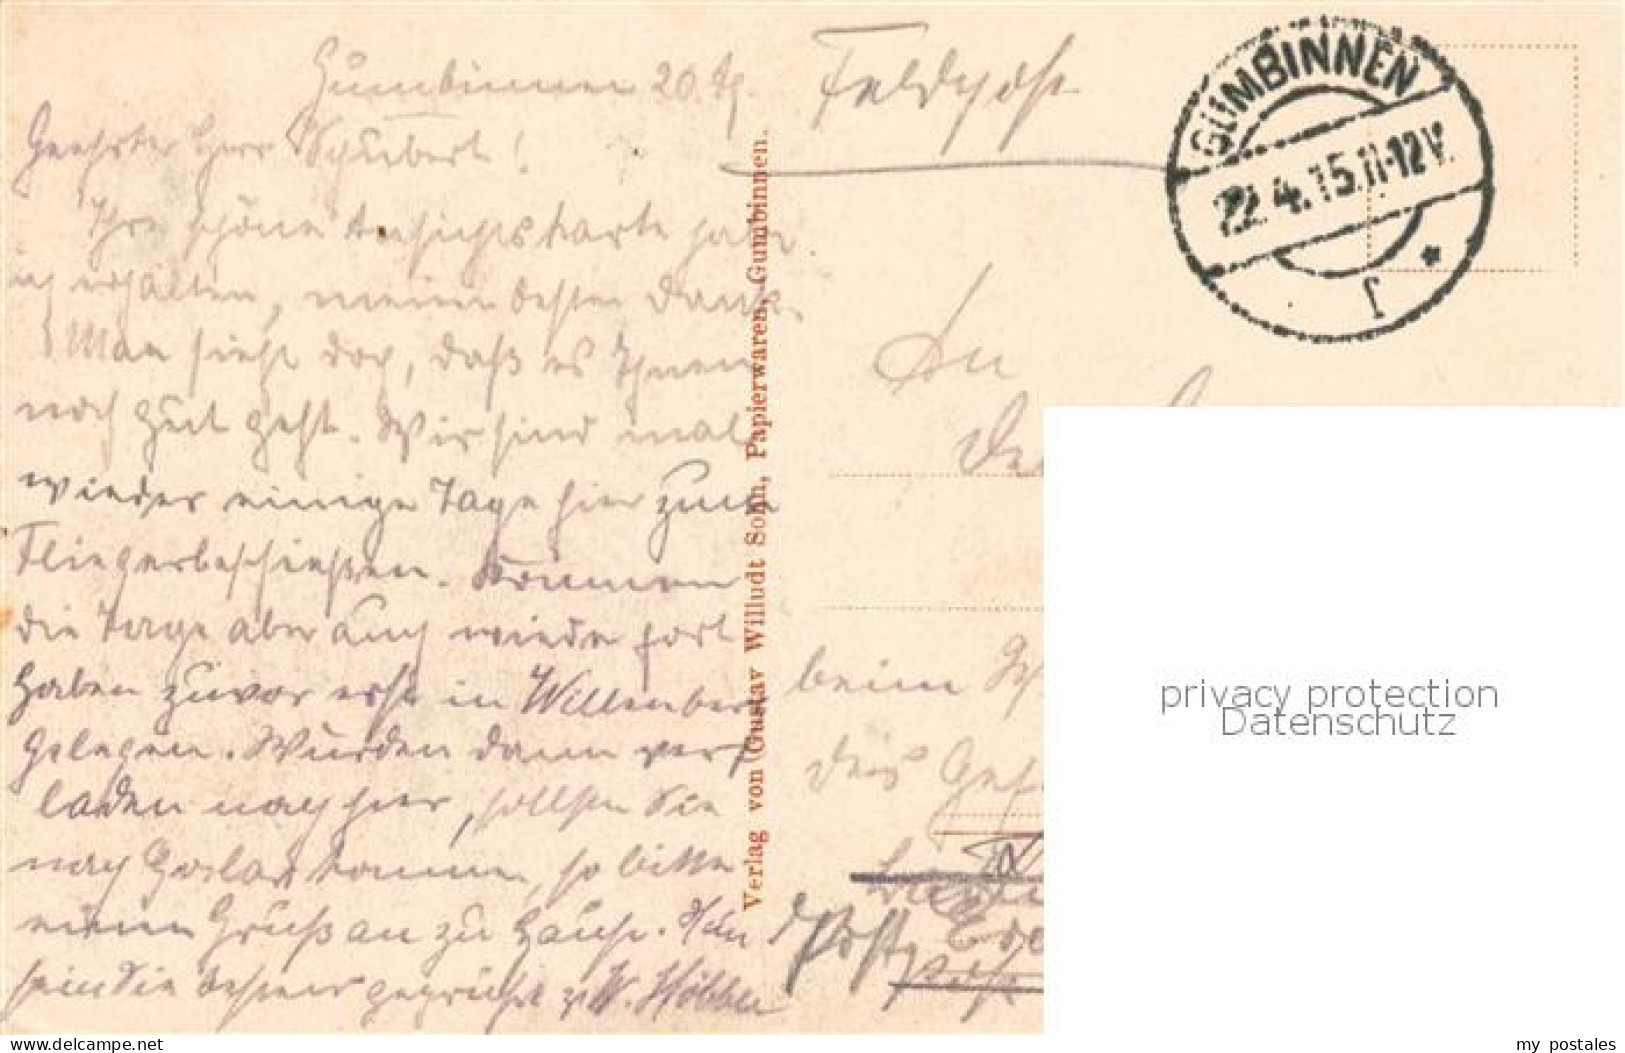 Gumbinnen 20.4.
Geehrter Herr Schubert!
Ihre schöne Ansichtskarte habe
ich erhalten, meinen besten Dank.
Man sieht doch, daß es Ihnen
noch gut geht. Wir sind mal
wieder einige Tage hier zum
Fliegerbeschießen. Kommen
die Tage aber auch wieder fort
Haben zuvor erst in Willenberg
gelegen. Wurden dann ver-
laden nach hier, sollten Sie
nach Goslar kommen, so bitte
einen Gruß an zu Hause. Nun
seien Sie bestens gegrüßt W.
Verlag von Gustav Willudt Sohn, Papierwaren, Gumbinnen.
Feldpost
GUMBINNEN
22.4.15.11-12V.
*
f
An
beim
des
Post
privacy protection
Datenschutz
www.delcampe.net
my_postales